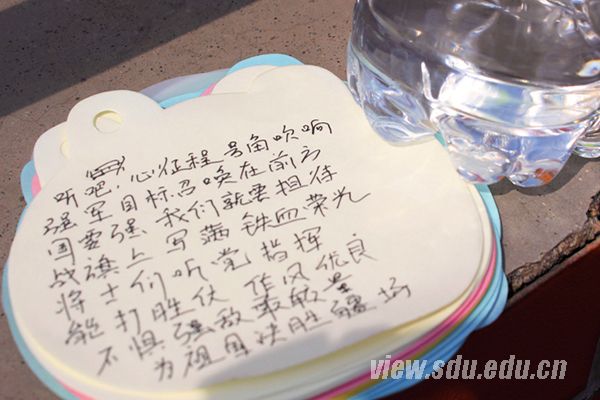 听吧,心征程号角吹响
强军目标召唤在前方
国要强 我们就要担待
战旗上写满铁血荣光
将士们听党指挥
能打胜仗 作风优良
不惧强敌敢较量
为祖国决胜疆场
view.sdu.edu.cn